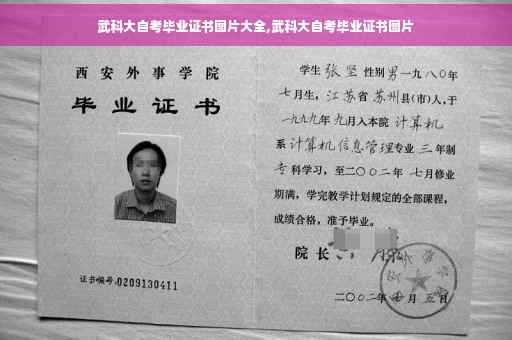 武科大自考毕业证书图片大全,武科大自考毕业证书图片
西安外事学院
毕业证书
证书编号:0209130411
学生 张坚 性别 男 一九八〇年
七月生, 江苏省 苏州县(市)人,于
一九九九年 九月入本院 计算机
系 计算机信息管理专业 三 年制
专科学习,至二〇〇二年 七月修业
期满,学完教学计划规定的全部课程,
成绩合格,准予毕业。
院长
二〇〇二年 月 五日